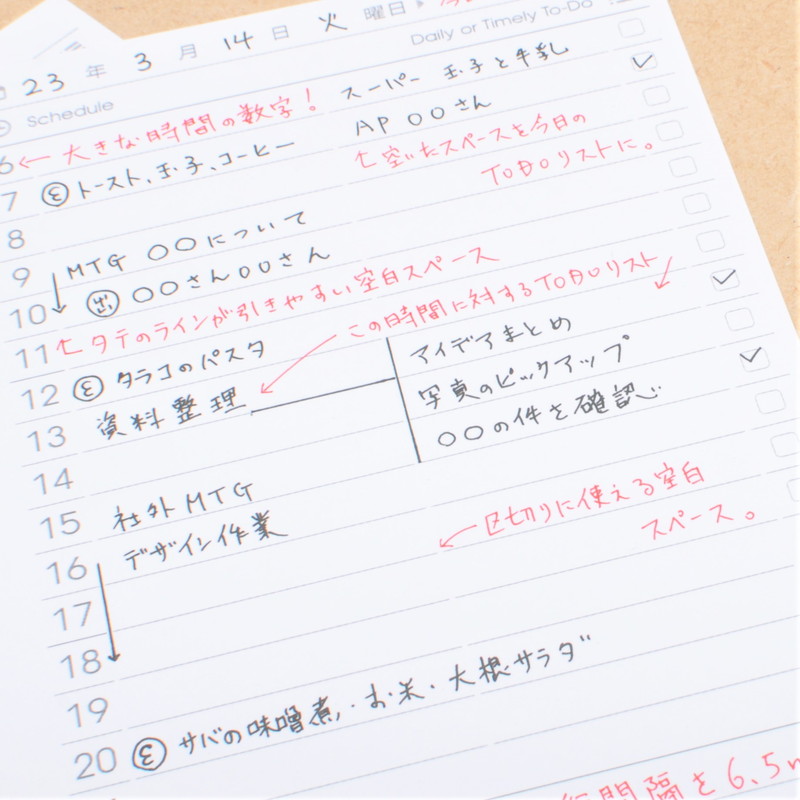 23 年 3 月 14 日 火 曜日
Daily or Timely To-Do
Schedule
スーパー 玉子と牛乳
6 ← 大きな時間の数字!
AP 〇〇さん
7 ③ トースト、玉子、コーヒー
↑空いたスペースを今日の
TODOリストに。
8
9 MTG 〇〇について
10 〇〇さん〇〇さん
11 ↑タテのラインが引きやすい空白スペース
この時間に対するTODOリスト
12 ③ タラコのパスタ
アイデアまとめ
13 資料整理
写真のピックアップ
〇〇の件を確認
14
15 社外MTG
←区切りに使える空白
スペース。
16 デザイン作業
17
18
19
20 ③ サバの味噌煮・お米・大根サラダ
行間隔を6.5